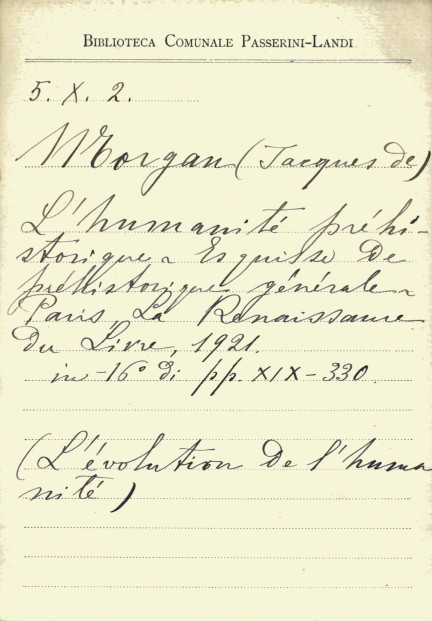 BIBLIOTECA COMUNALE PASSERINI-LANDI
5. X. 2.
Morgan (Jacques de)
L'humanité préhi-
storique ~ Esquisse de
préhistorique générale ~
Paris, La Renaissance
du Livre, 1921.
in-16° di pp. XIX-330.
(L'évolution de l'huma
nité)